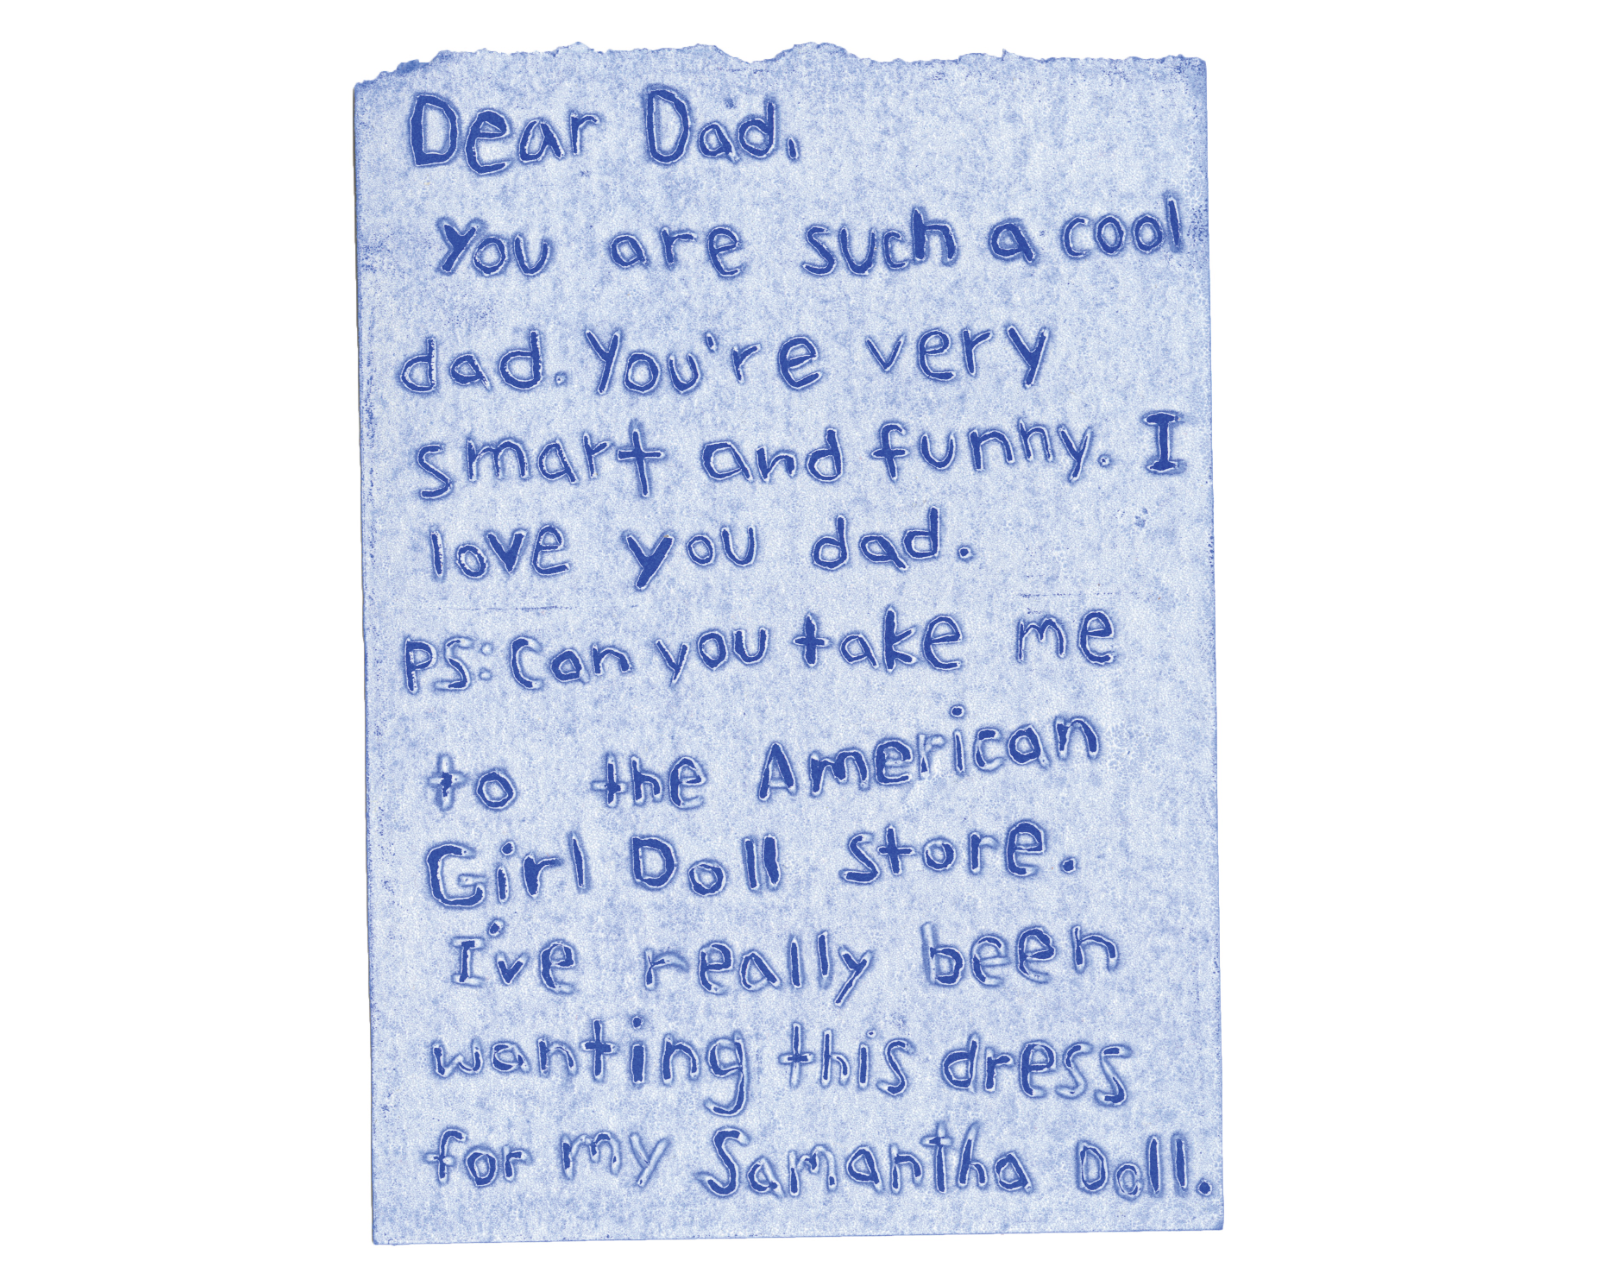 Dear Dad,
You are such a cool
dad. You're very
smart and funny. I
love you dad.
PS: Can you take me
to the American
Girl Doll store.
I've really been
wanting this dress
for my Samantha Doll.